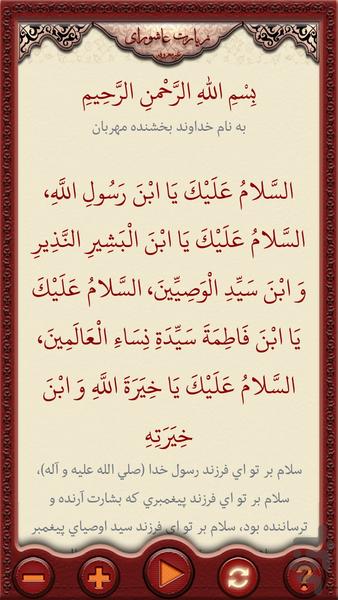 زیارت عاشورای
غیرمعروفه
بِسْمِ اللهِ الرَّحْمنِ الرَّحِيمِ
به نام خداوند بخشنده مهربان
السَّلامُ عَلَيْكَ يَا ابْنَ رَسُولِ اللَّهِ،
السَّلامُ عَلَيْكَ يَا ابْنَ الْبَشِيرِ النَّذِيرِ
وَ ابْنَ سَيِّدِ الْوَصِيِّينَ، السَّلامُ عَلَيْكَ
يَا ابْنَ فَاطِمَةَ سَيِّدَةِ نِسَاءِ الْعَالَمِينَ،
السَّلامُ عَلَيْكَ يَا خِيَرَةَ اللَّهِ وَ ابْنَ
خِيَرَتِهِ
سلام بر تو اي فرزند رسول خدا (صلي الله عليه و آله)،
سلام بر تو اي فرزند پيغمبري كه بشارت آرنده و
ترساننده بود، سلام بر تو اي فرزند سيد اوصياي پيغمبر